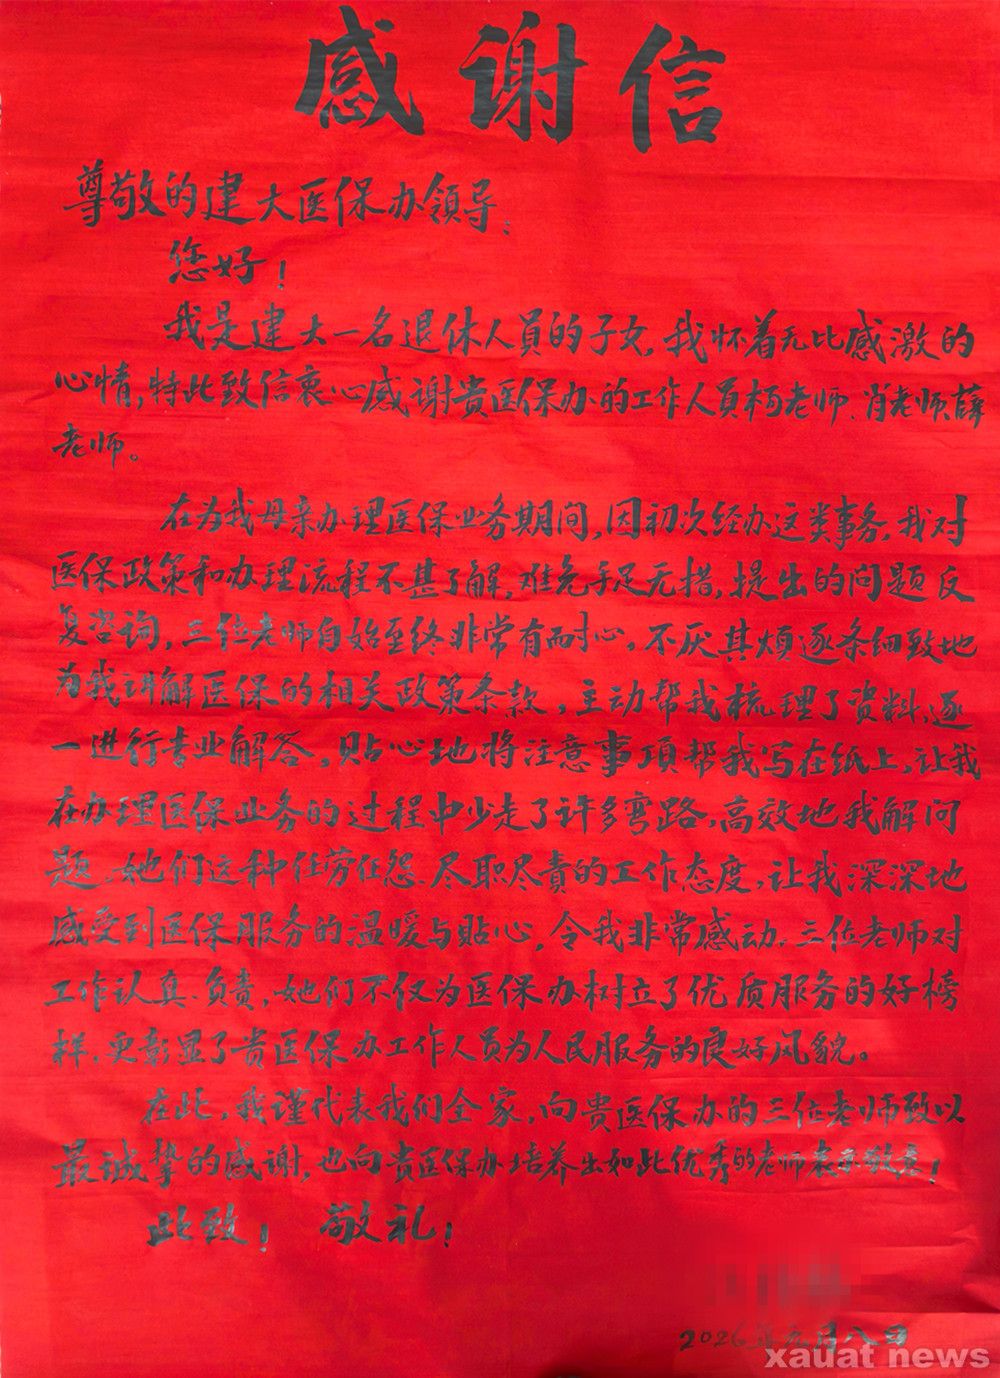 感谢信
尊敬的建大医保办领导:
您好!
我是建大一名退休人员的子女,我怀着无比感激的
心情,特此致信衷心感谢贵医保办的工作人员杨老师、肖老师、薛
老师。
在为我母亲办理医保业务期间,因初次经办这类事务,我对
医保政策和办理流程不甚了解,难免手足无措,提出的问题反
复咨询,三位老师自始至终非常有耐心,不厌其烦逐条细致地
为我讲解医保的相关政策条款,主动帮我梳理了资料,逐
一进行专业解答,贴心地将注意事项帮我写在纸上,让我
在办理医保业务的过程中少走了许多弯路,高效地我解问
题,她们这种任劳任怨、尽职尽责的工作态度,让我深深地
感受到医保服务的温暖与贴心,令我非常感动。三位老师对
工作认真、负责,她们不仅为医保办树立了优质服务的好榜
样,更彰显了贵医保办工作人员为人民服务的良好风貌。
在此,我谨代表我们全家,向贵医保办的三位老师致以
最诚挚的感谢,也向贵医保办培养出如此优秀的老师表示敬意!
此致! 敬礼!
2026年元月八日
xauat news